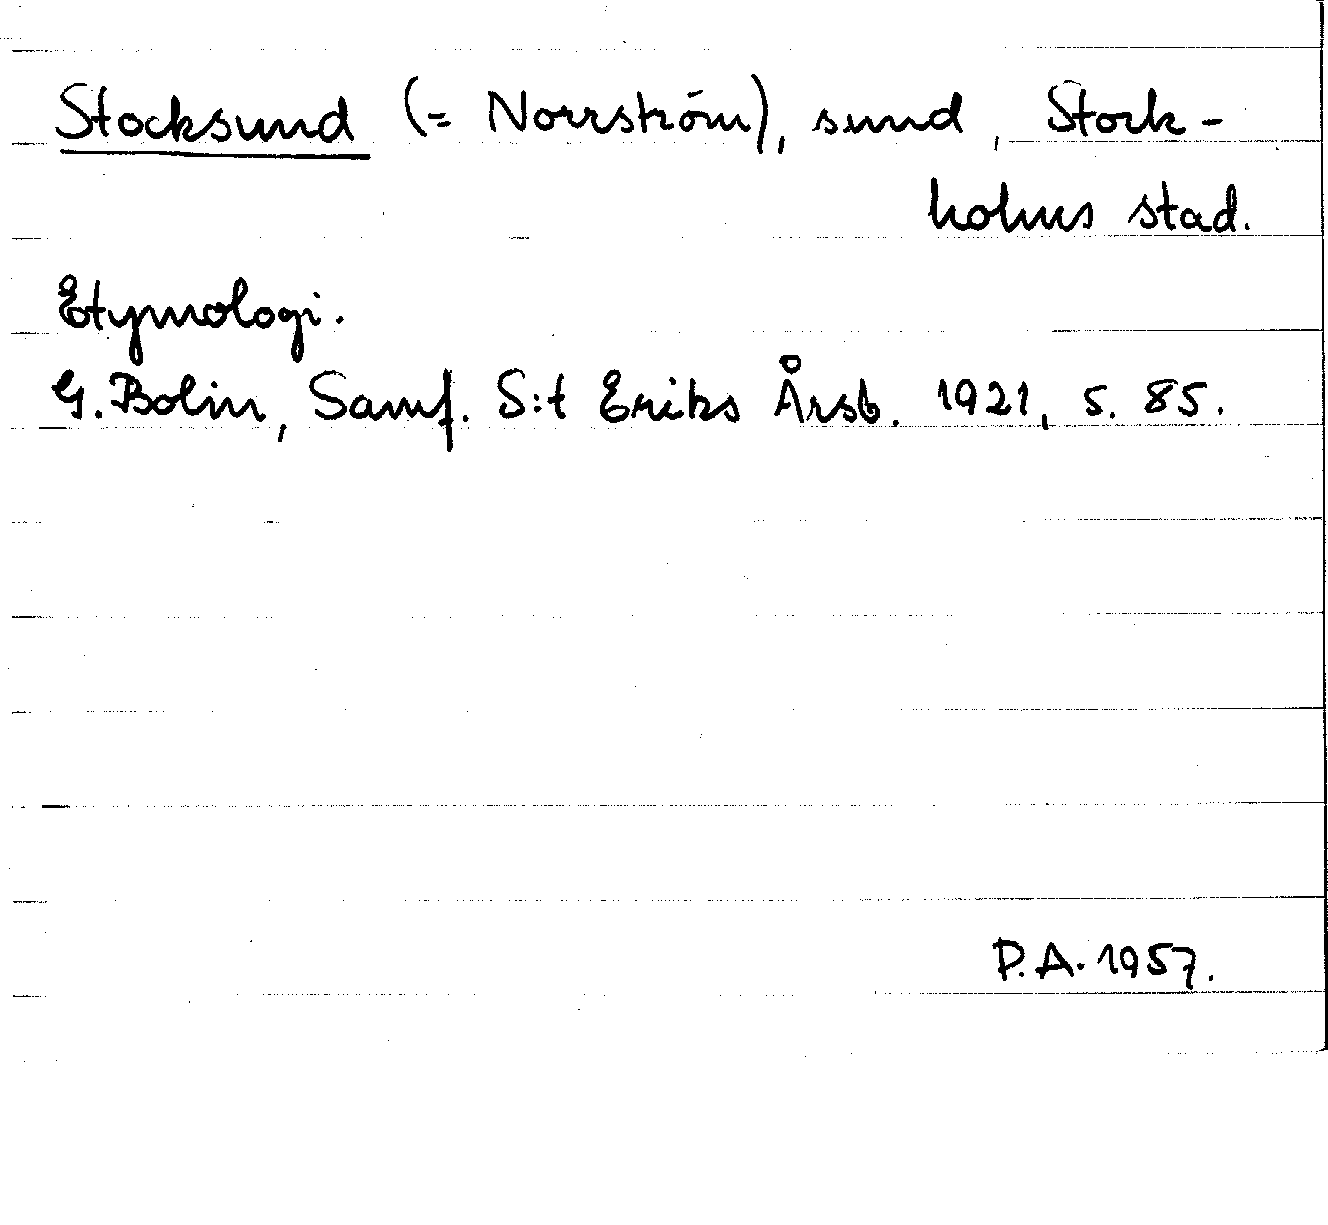 Stocksund (= Norrström), sund, Stock-
holms stad.
Etymologi.
G. Bolin, Samf. S:t Eriks Årsb. 1921, s. 85.
P.A. 1957.